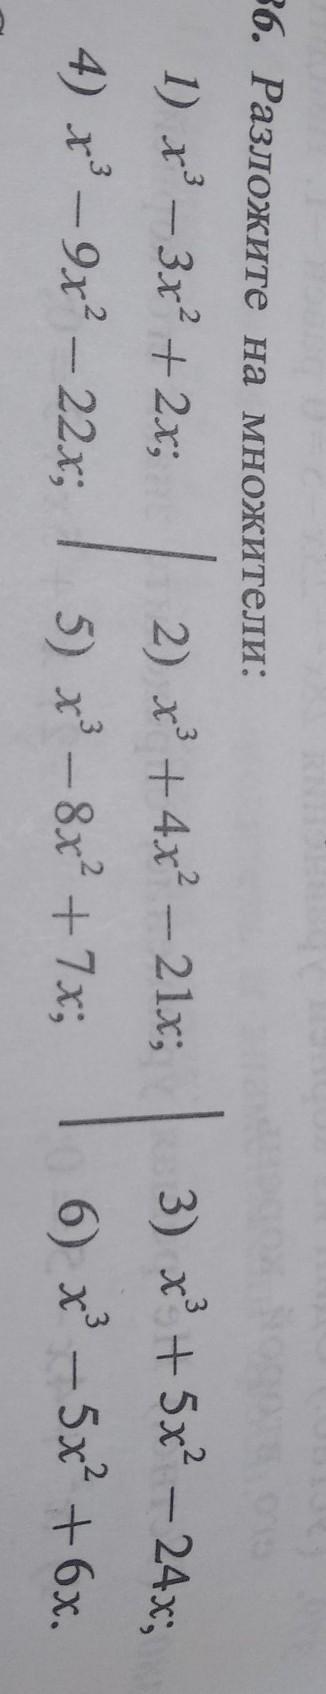 36. Разложите на множители:
1) x³ − 3x² + 2x; 2) x³ + 4x² − 21x; 3) x³ + 5x² − 24x;
4) x³ − 9x² − 22x; 5) x³ − 8x² + 7x; 6) x³ − 5x² + 6x.